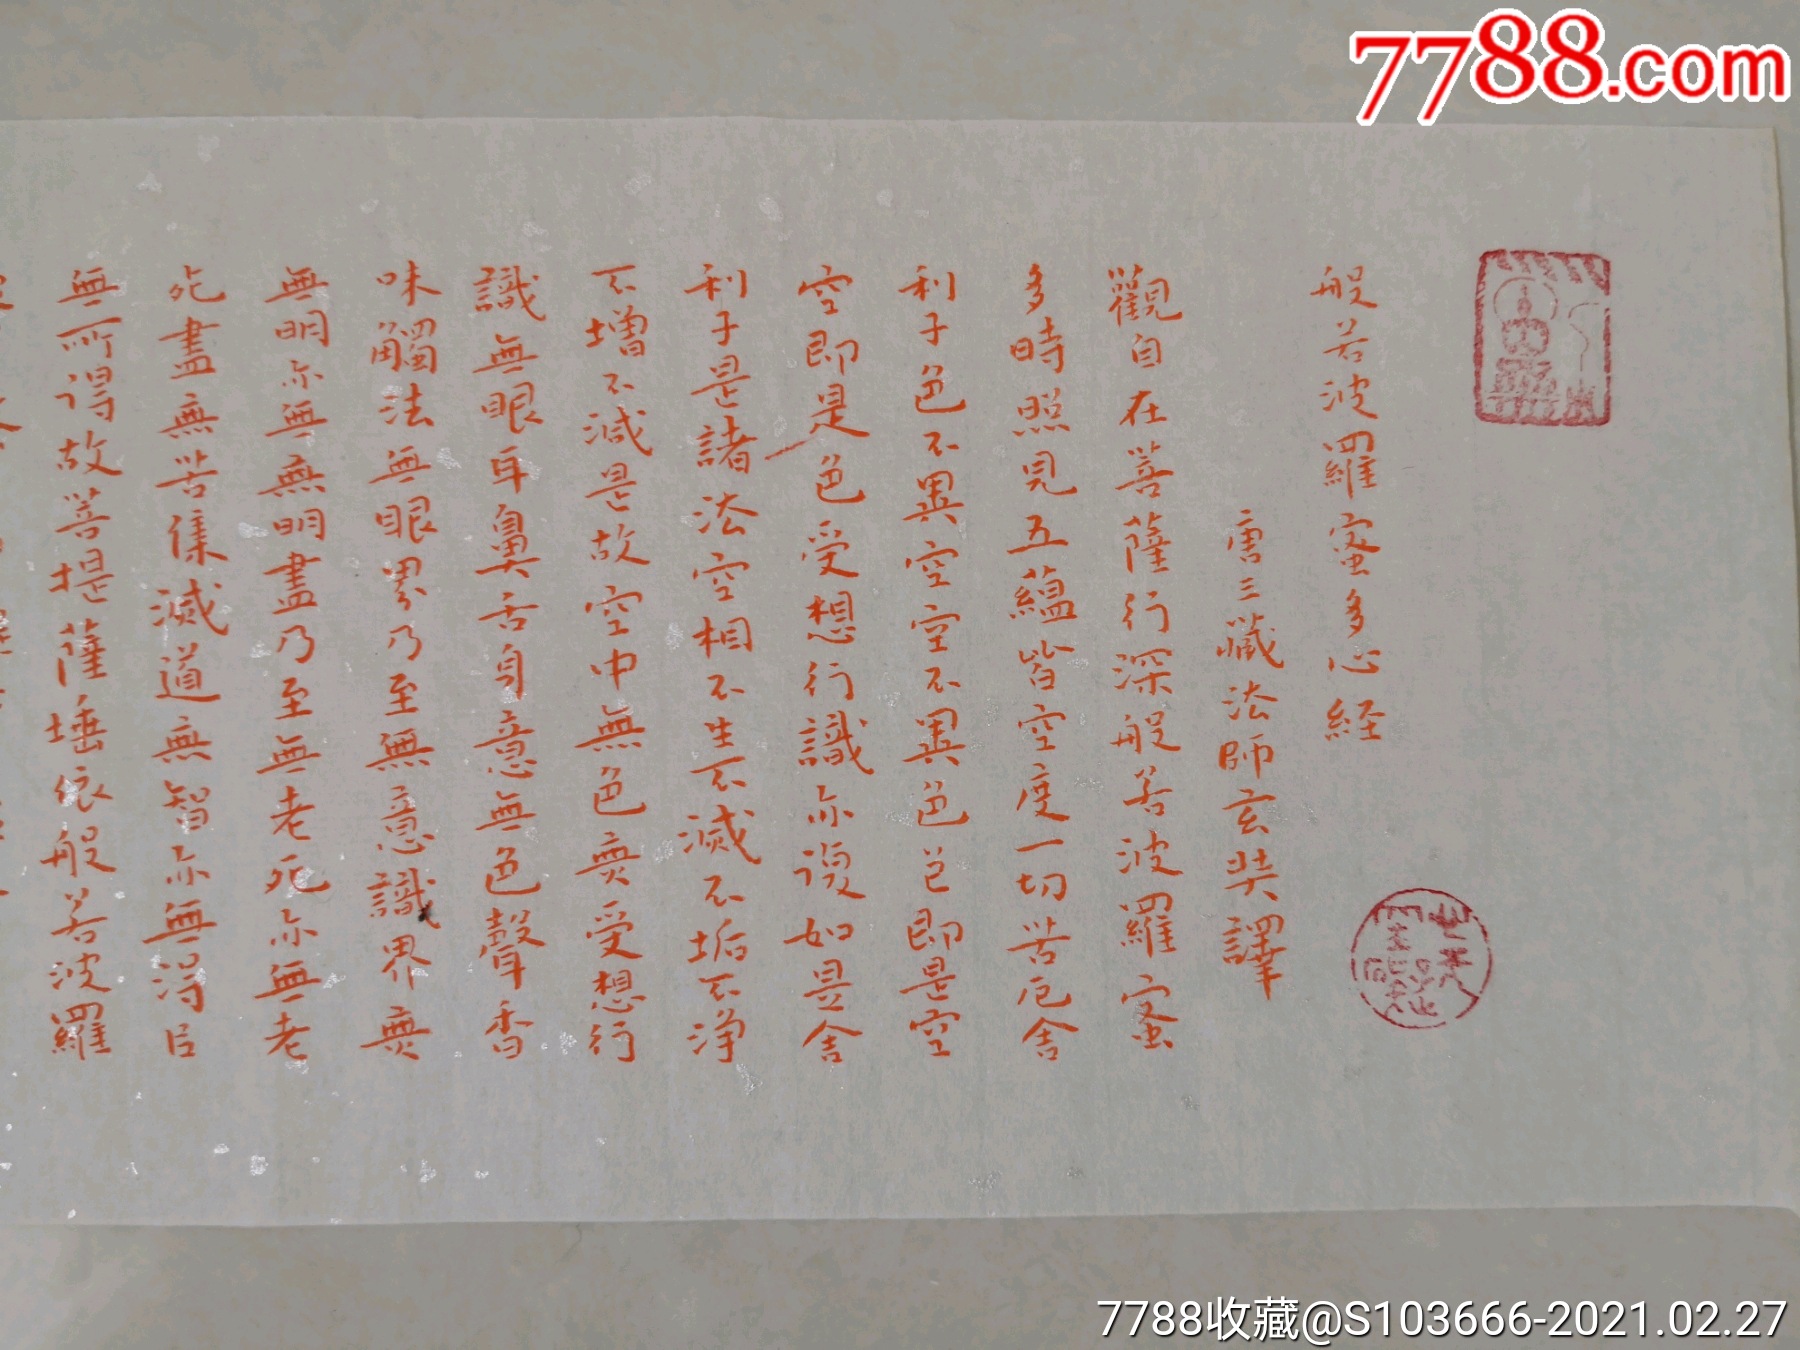 7788.com
般若波羅蜜多心経
唐三藏法師玄奘譯
觀自在菩薩行深般若波羅蜜
多時照見五蘊皆空度一切苦厄舍
利子色不異空空不異色色即是空
空即是色受想行識亦復如是舍
利子是諸法空相不生不滅不垢不淨
不增不減是故空中無色無受想行
識無眼耳鼻舌身意無色聲香
味觸法無眼界乃至無意識界無
無明亦無無明盡乃至無老死亦無老
死盡無苦集滅道無智亦無得以
無所得故菩提薩埵依般若波羅
7788收藏@S103666-2021.02.27